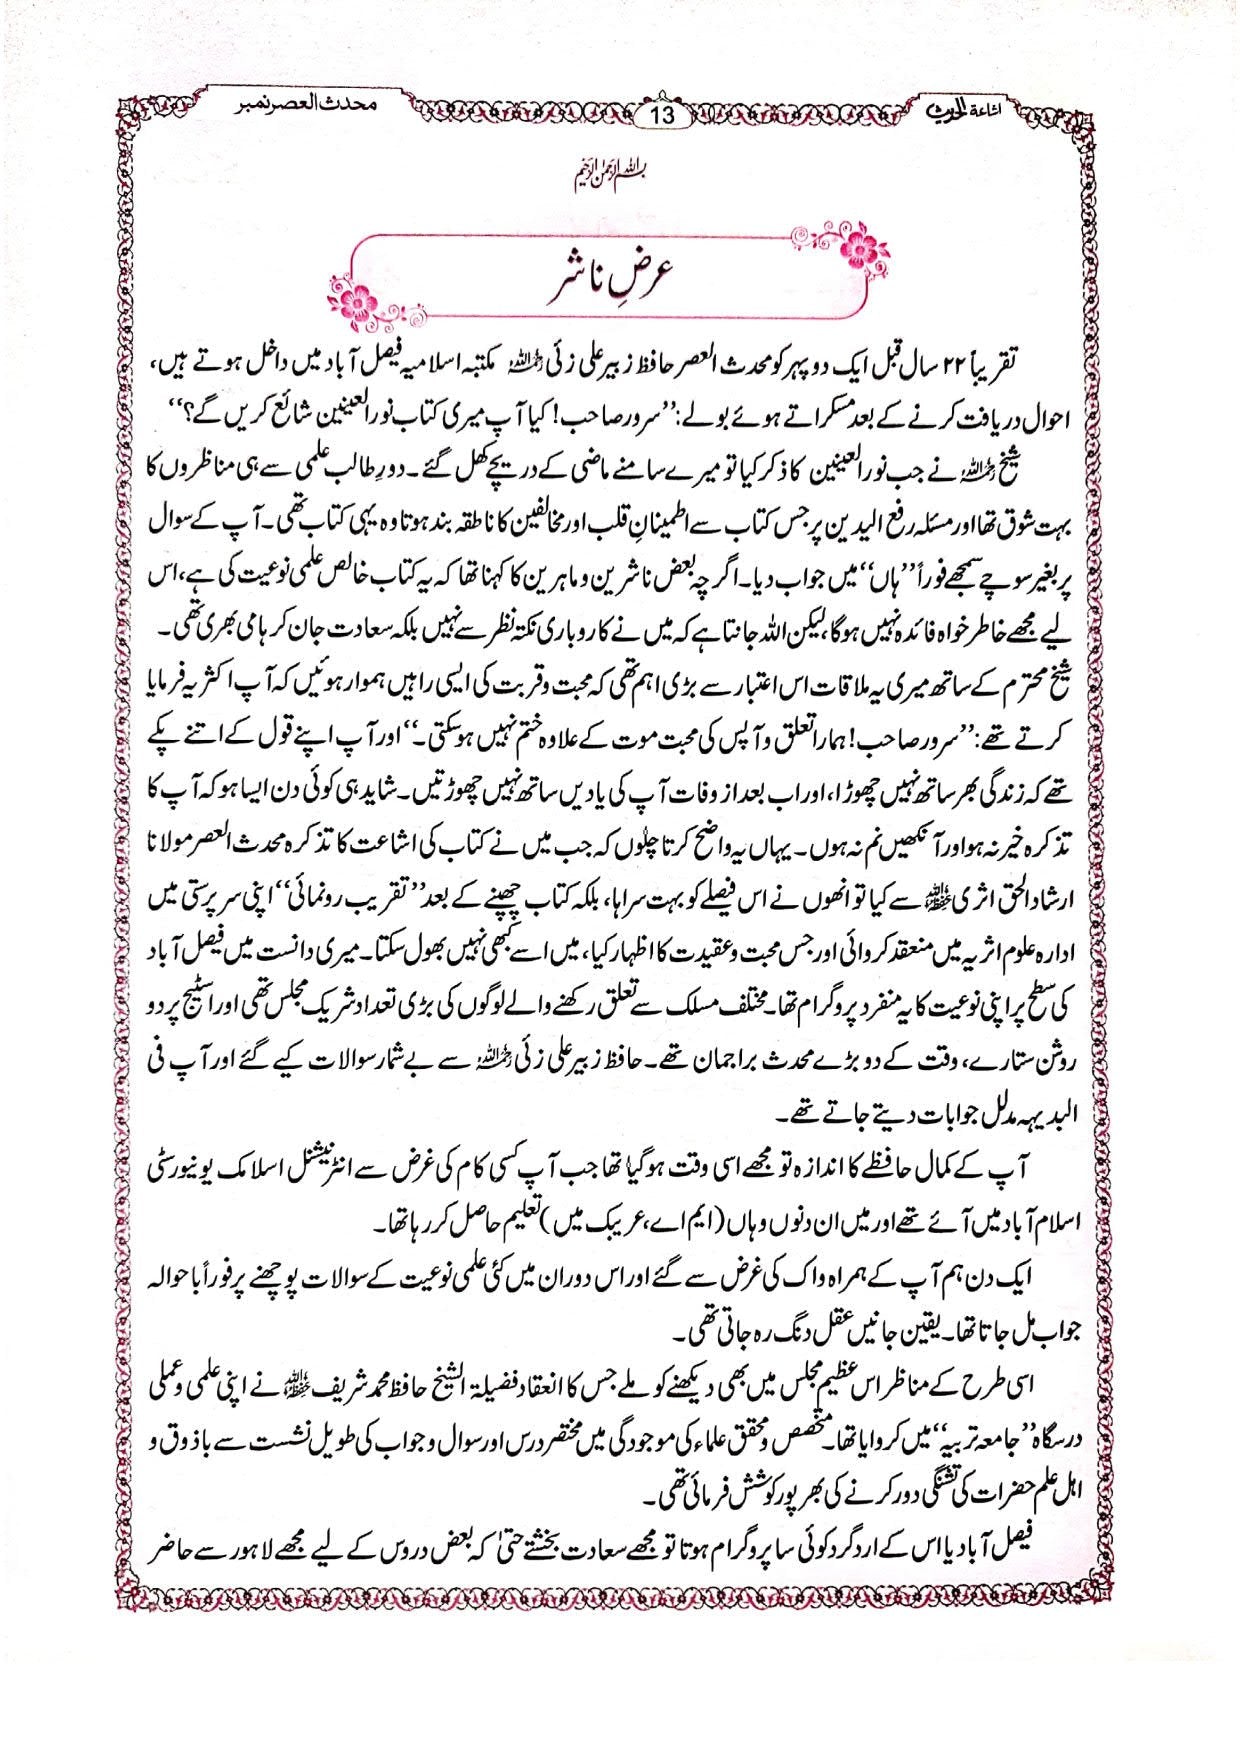 اشاعۃ الحدیث
13
محدث العصر نمبر
بسم اللہ الرحمن الرحیم
عرضِ ناشر
تقریباً ۲۲ سال قبل ایک دوپہر کو محدث العصر حافظ زبیر علی زئی رحمہ اللہ مکتبہ اسلامیہ فیصل آباد میں داخل ہوتے ہیں،
احوال دریافت کرنے کے بعد مسکراتے ہوئے بولے: ’’سرور صاحب! کیا آپ میری کتاب نور العینین شائع کریں گے؟‘‘
شیخ رحمہ اللہ نے جب نور العینین کا ذکر کیا تو میرے سامنے ماضی کے دریچے کھل گئے۔ دورِ طالب علمی سے ہی مناظروں کا
بہت شوق تھا اور مسئلہ رفع الیدین پر جس کتاب سے اطمینانِ قلب اور مخالفین کا ناطقہ بند ہوتا وہ یہی کتاب تھی۔ آپ کے سوال
پر بغیر سوچے سمجھے فوراً ’’ہاں‘‘ میں جواب دیا۔ اگرچہ بعض ناشرین و ماہرین کا کہنا تھا کہ یہ کتاب خالص علمی نوعیت کی ہے، اس
لیے مجھے خاطر خواہ فائدہ نہیں ہوگا، لیکن اللہ جانتا ہے کہ میں نے کاروباری نکتہ نظر سے نہیں بلکہ سعادت جان کر ہامی بھری تھی۔
شیخ محترم کے ساتھ میری یہ ملاقات اس اعتبار سے بڑی اہم تھی کہ محبت و قربت کی ایسی راہیں ہموار ہوئیں کہ آپ اکثر یہ فرمایا
کرتے تھے: ’’سرور صاحب! ہمارا تعلق و آپس کی محبت موت کے علاوہ ختم نہیں ہو سکتی۔‘‘ اور آپ اپنے قول کے اتنے پکے
تھے کہ زندگی بھر ساتھ نہیں چھوڑا، اور اب بعد از وفات آپ کی یادیں ساتھ نہیں چھوڑتیں۔ شاید ہی کوئی دن ایسا ہو کہ آپ کا
تذکرہ خیر نہ ہو اور آنکھیں نم نہ ہوں۔ یہاں یہ واضح کرتا چلوں کہ جب میں نے کتاب کی اشاعت کا تذکرہ محدث العصر مولانا
ارشاد الحق اثری حفظہ اللہ سے کیا تو انھوں نے اس فیصلے کو بہت سراہا، بلکہ کتاب چھپنے کے بعد ’’تقریب رونمائی‘‘ اپنی سرپرستی میں
ادارہ علوم اثریہ میں منعقد کروائی اور جس محبت و عقیدت کا اظہار کیا، میں اسے کبھی نہیں بھول سکتا۔ میری دانست میں فیصل آباد
کی سطح پر اپنی نوعیت کا یہ منفرد پروگرام تھا۔ مختلف مسلک سے تعلق رکھنے والے لوگوں کی بڑی تعداد شریک مجلس تھی اور اسٹیج پر دو
روشن ستارے، وقت کے دو بڑے محدث براجمان تھے۔ حافظ زبیر علی زئی رحمہ اللہ سے بے شمار سوالات کیے گئے اور آپ فی
البدیہہ مدلل جوابات دیتے جاتے تھے۔
آپ کے کمال حافظے کا اندازہ تو مجھے اسی وقت ہو گیا تھا جب آپ کسی کام کی غرض سے انٹرنیشنل اسلامک یونیورسٹی
اسلام آباد میں آئے تھے اور میں ان دنوں وہاں (ایم اے، عریبک میں) تعلیم حاصل کر رہا تھا۔
ایک دن ہم آپ کے ہمراہ واک کی غرض سے گئے اور اس دوران میں کئی علمی نوعیت کے سوالات پوچھنے پر فوراً باحوالہ
جواب مل جاتا تھا۔ یقین جانیں عقل دنگ رہ جاتی تھی۔
اسی طرح کے مناظر اس عظیم مجلس میں بھی دیکھنے کو ملے جس کا انعقاد فضیلۃ الشیخ حافظ محمد شریف حفظہ اللہ نے اپنی علمی و عملی
درسگاہ ’’جامعہ تربیہ‘‘ میں کروایا تھا۔ متخصص و محقق علماء کی موجودگی میں مختصر درس اور سوال و جواب کی طویل نشست سے باذوق و
اہل علم حضرات کی تشنگی دور کرنے کی بھرپور کوشش فرمائی تھی۔
فیصل آباد یا اس کے اردگرد کوئی سا پروگرام ہوتا تو مجھے سعادت بخشتے حتیٰ کہ بعض دروس کے لیے مجھے لاہور سے حاضر